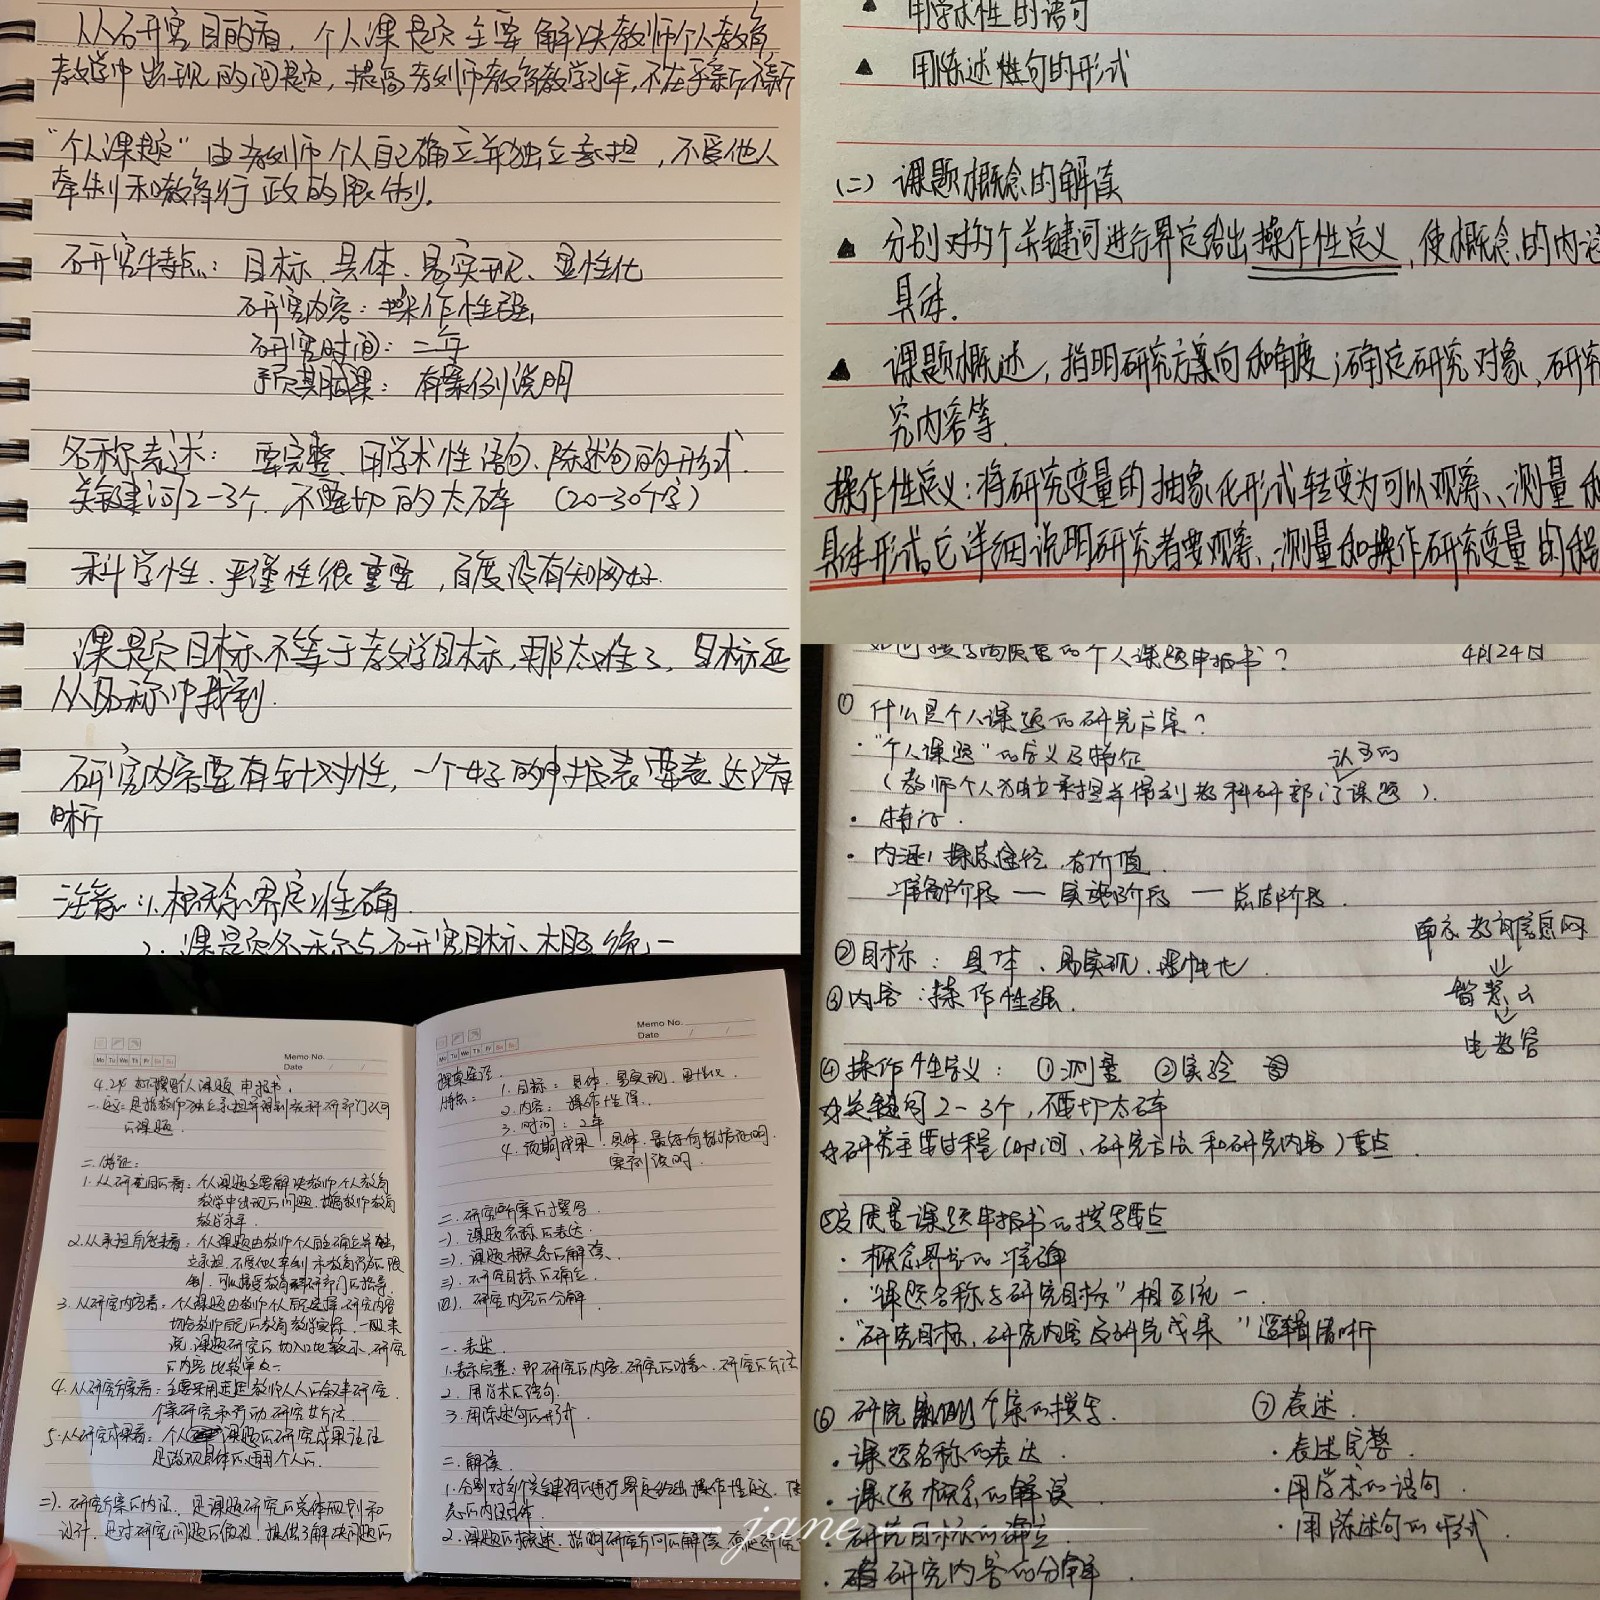 从研究目的看，个人课题主要解决教师个人教育
教学中出现的问题，提高教师教育教学水平，不在乎亲所
“个人课题”由教师个人自己确立并独立承担，不受他人
牵制和教育行政的限制。
研究特点：目标、具体、易实现、显性化
研究内容：操作性强
研究时间：二年
预期成果：有案例说明
名称表述：要完整、用学术性语句、陈述句的形式.
关键词2-3个，不要切的太碎 （20-30个字）
科学性、严谨性很重要，百度没有知网好.
课题目标不等于教学目标，那太难了，目标
从名称中找到.
研究内容要有针对性，一个好的申报表要表达清
晰
注意：1.概念界定准确
2.课题名称与研究目标、相互统一
▲ 用学术性的语句
▲ 用陈述性句的形式
(二) 课题概念的解读
▲ 分别对各个关键词进行界定给出操作性定义，使概念的内涵
具体.
▲ 课题概述，指明研究方向和角度；确定研究对象、研究
究内容等.
操作性定义：将研究变量的抽象化形式转变为可以观察、测量和
具体形式,它详细说明研究者要观察、测量和操作研究变量的程
如何撰写高质量的个人课题申报书？ 4月24日
① 什么是个人课题的研究方案？
·“个人课题”的定义及特征 认可的
（教师个人独立承担并得到教科研部门课题）.
· 特
· 内涵，探索途径，有价值
准备阶段 — 实施阶段 — 总结阶段.
南京教育信息网
智慧云
②目标：具体、易实现、显性化.
③内容：操作性强.
④操作性定义：①测量 ②实验
☆关键词2-3个，不要切太碎
☆研究主要过程（时间、研究方法和研究内容）重点
质量课题申报书的撰写要点
·概念界定的准确
·“课题名称与研究目标”相互统一.
·“研究目标、研究内容及研究成果”逻辑清晰
⑥ 研究方案的撰写. ⑦ 表述.
·课题名称的表达. ·表述完整.
·课题概念的解读. ·用学术的语句.
·研究目标的确立 ·用陈述句的形式.
·研究内容的分解.
Memo No.
Date / /
Mo Tu We Th Fr Sa Su
4.24 如何撰写个人课题申报书.
一.定义：是指教师独立承担并得到教科研部门认可
的课题.
二.特征：
1.从研究目的看：个人课题主要解决教师个人教育
教学中出现的问题，提高教师教育
教学水平.
2.从承担角度来看：个人课题由教师个人自己确立并独
立承担，不受他人牵制和教育行政的限
制，可以接受教育科研部门的指导.
3.从研究内容看：个人课题由教师个人自己选择，研究内容
切合教师自己的教育教学实际，一般来
说，课题研究的切入口比较小，研究
的内容比较单一.
4.从研究方案看：主要采用适合教师个人的叙事研究、
个案研究和行动研究等方法.
5.从研究成果看：个人课题的研究成果往往
是微观具体的适用个人的.
三).研究方案的内涵. 是课题研究的总体规划和
设计，是对研究问题的假设，提供了解决问题的
Memo No.
Date / /
Mo Tu We Th Fr Sa Su
探索途径.
特点：1.目标：具体、易实现、显性化.
2.内容：操作性强.
3.时间：2年
4.预期成果：具体，最好有数据证明.
案例说明.
二.研究方案的撰写.
一).课题名称的表达.
二).课题概念的解读.
三).研究目标的确立.
四).研究内容的分解.
一.表述.
1.表示完整：即研究的内容、研究的对象、研究的方法
2.用学术的语句.
3.用陈述句的形式.
二.解读.
1.分别对各个关键词的进行界定给出操作性定义，使
念的内涵具体.
2.课题的概述，指明研究方向的解读，确定研究
jane